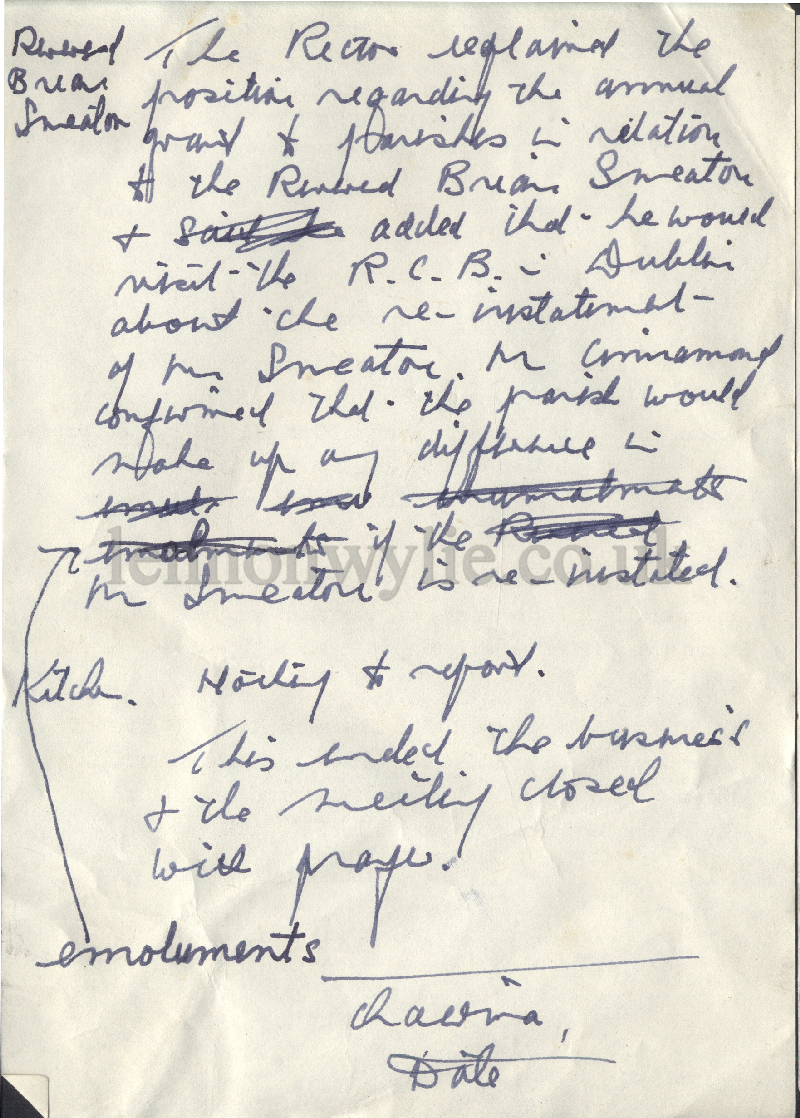 Reverend
Brian
Smeaton
The Rector explained the
position regarding the annual
grant to parishes in relation
to the Reverend Brian Smeaton
& added that he would
visit the R.C.B. in Dublin
about the re-instatement
of Mr Smeaton. Mr Cinnamond
confirmed that the parish would
make up any difference in
if the
Mr Smeaton is re-instated.
lennonwylie.co.uk
Kitchen. Nothing to report.
This ended the business
& the meeting closed
with prayer.
emoluments
Chairman,
Date